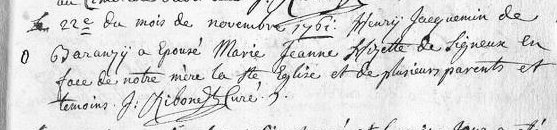 Le 22e du mois de novembre 1761. Henry Jacquemin de
Baranzy a Epousé Marie Jeanne Hizette de Signeux en
face de notre mère la Ste Eglise et de plusieurs parents et
temoins. J: Ribonet Curé.